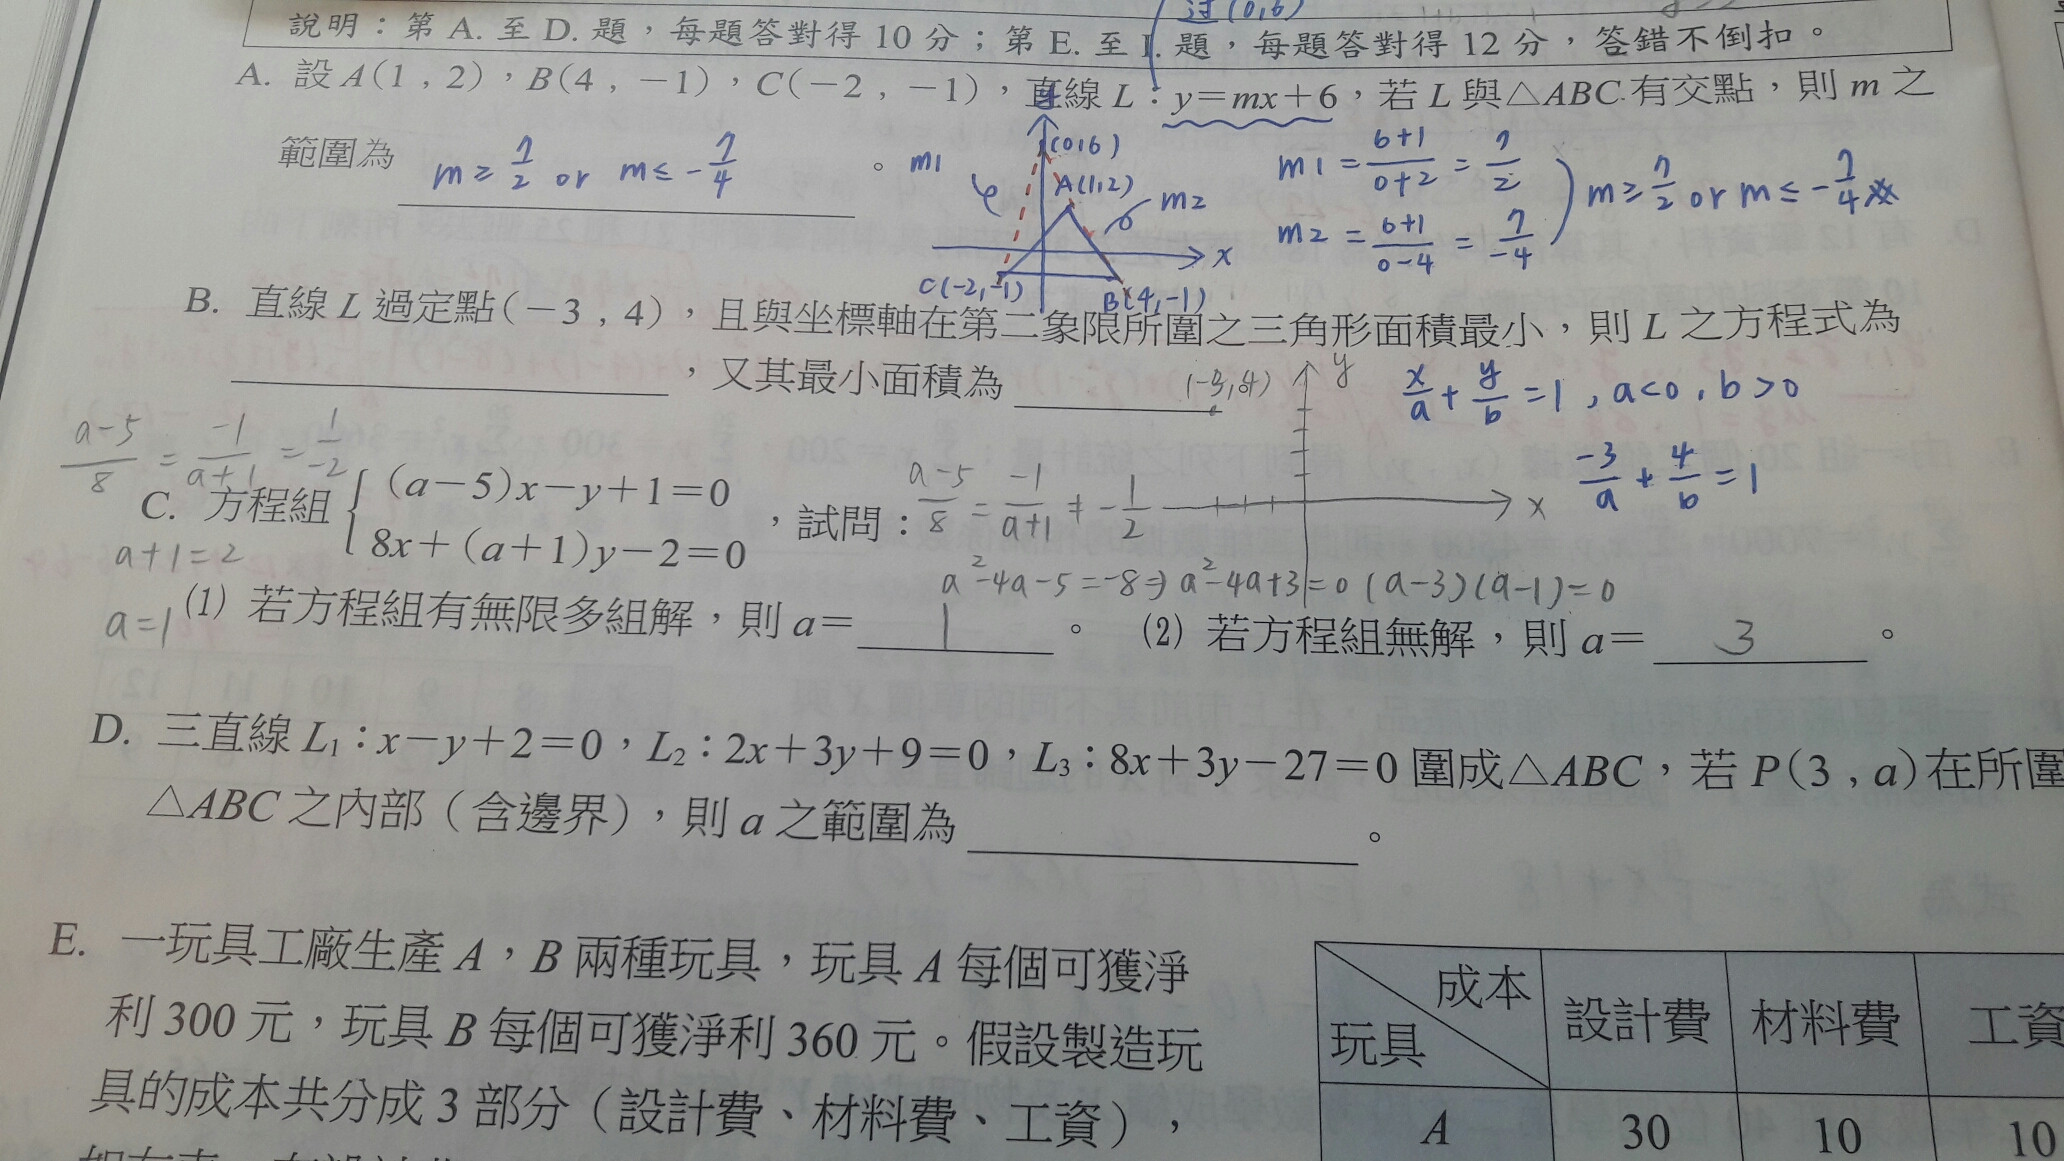 过(0,6)
說明：第 A. 至 D. 題，每題答對得 10 分；第 E. 至 I. 題，每題答對得 12 分，答錯不倒扣。
A. 設 A(1，2)，B(4，−1)，C(−2，−1)，直線 L：y=mx+6，若 L 與△ABC 有交點，則 m 之
範圍為 m≥7/2 or m≤-7/4 。
y
(0,6)
A(1,2)
m1
m2
x
C(-2,-1)
B(4,-1)
m1 = (6+1)/(0+2) = 7/2
m2 = (6+1)/(0-4) = 7/-4
m≥7/2 or m≤-7/4
B. 直線 L 過定點(−3，4)，且與坐標軸在第二象限所圍之三角形面積最小，則 L 之方程式為
，又其最小面積為
(-3,4)
y
x
x/a + y/b = 1 , a<0 , b>0
-3/a + 4/b = 1
(a-5)/8 = -1/(a+1) = 1/-2
a+1=2
a=1
C. 方程組 { (a−5)x−y+1=0
8x+(a+1)y−2=0 ，試問：
(a-5)/8 = -1/(a+1) ≠ -1/2
a²-4a-5=-8⇒a²-4a+3=0 (a-3)(a-1)=0
(1) 若方程組有無限多組解，則 a= 1 。 (2) 若方程組無解，則 a= 3 。
D. 三直線 L₁：x−y+2=0，L₂：2x+3y+9=0，L₃：8x+3y−27=0 圍成△ABC，若 P(3，a)在所圍
△ABC 之內部（含邊界），則 a 之範圍為 。
E. 一玩具工廠生產 A，B 兩種玩具，玩具 A 每個可獲淨
利 300 元，玩具 B 每個可獲淨利 360 元。假設製造玩
具的成本共分成 3 部分（設計費、材料費、工資），
成本 設計費 材料費 工資
玩具
A 30 10 10